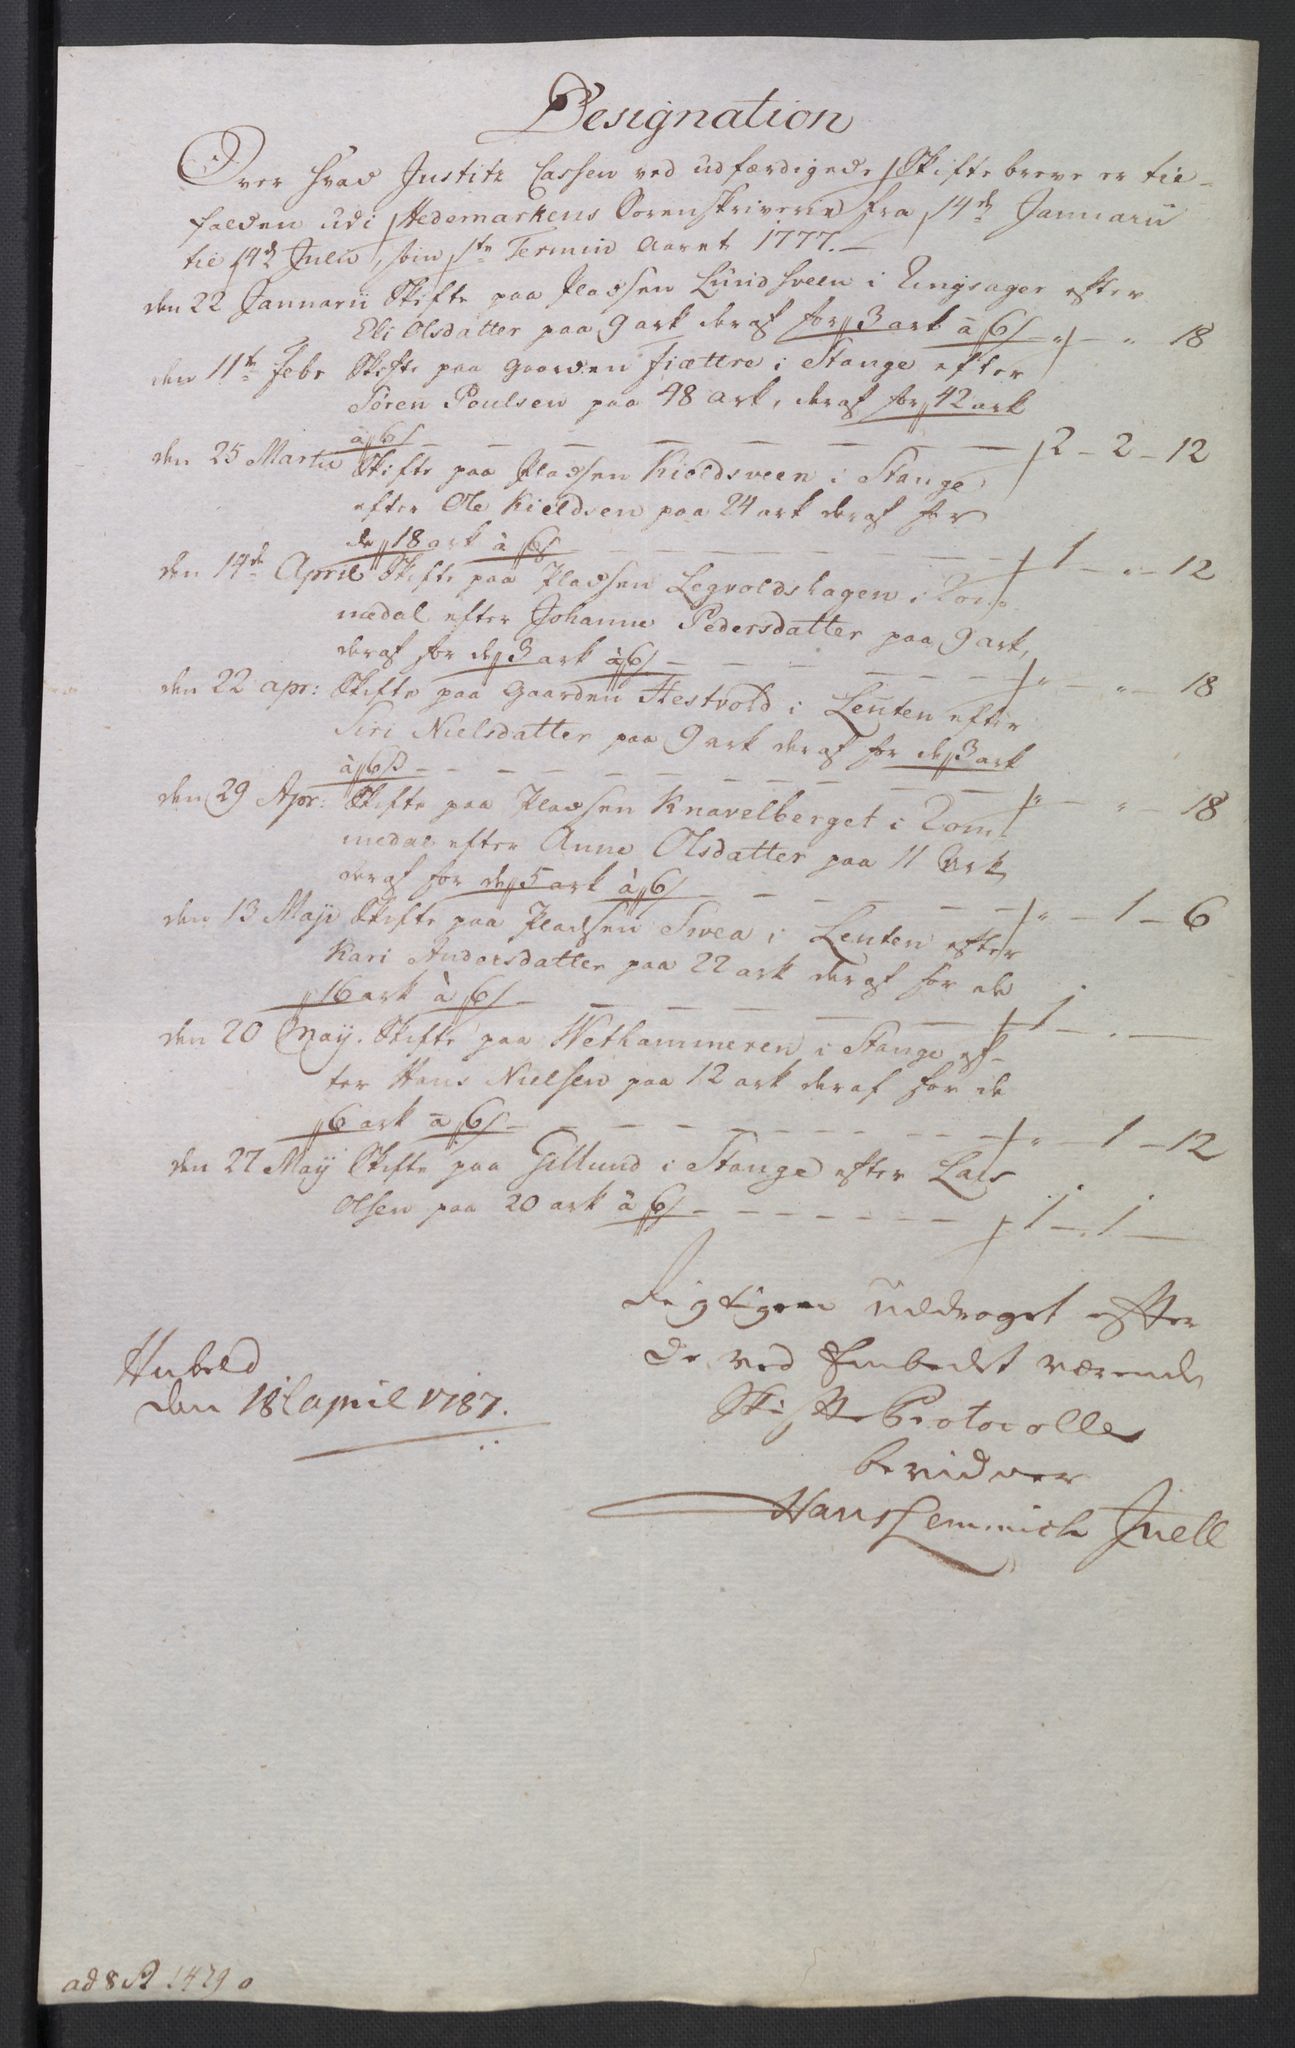 Designation
Over hvad Justitz Cassen ved udfærdigede Skiftebreve er til-
falden udi Hedemarkens Sorenskriverie fra 14de Januarii
til 14de Julii, som 1te Termin Aaret 1777.
den 22 Januarii Skifte paa Pladsen Lundsveen i Ringsager efter
Eli Olsdatter paa 9 ark deraf for 3 ark à 6 s — " — " 18
den 11te Febr Skifte paa Gaarden Fiættre i Stange efter
Søren Poulsen paa 48 ark, deraf for 42 ark
à 6 s — — — — — — 2 — 2 — 12
den 25 Martii Skifte paa Pladsen Kieldsveen i Stange
efter Ole Kieldsen paa 24 ark deraf for
de 18 ark à 6 s — — — — 1 — " — 12
den 14de April Skifte paa Pladsen Legvoldshagen i Rom-
medal efter Johanne Pedersdatter paa 9 ark,
deraf for de 3 ark à 6 s — — — — " — " — 18
den 22 apr: Skifte paa Gaarden Hestvold i Leuten efter
Siri Nielsdatter paa 9 ark deraf for de 3 ark
à 6 s — — — — — — " — " — 18
den 29 Apr: Skifte paa Pladsen Knavelberget i Rom-
medal efter Anne Olsdatter paa 11 Ark,
deraf for de 5 ark à 6 s — — — " — 1 — 6
den 13 Maji Skifte paa Pladsen Svea i Leuten efter
Kari Andersdatter paa 22 ark deraf for de
16 ark à 6 s — — — — — 1 — . —
den 20 May. Skifte paa Wethammeren i Stange ef-
ter Hans Nielsen paa 12 ark deraf for de
6 ark à 6 s — — — — — " — 1 — 12
den 27 May Skifte paa Gillund i Stange efter Lars
Olsen paa 20 ark à 6 s — — — — 1 — 1 —
Rigtigen uddraget efter
de ved Embedet værende
Skifte Protocoller
bevidner
Hans Lemmich Juell
Hubeld
den 18de April 1787.
ad 8 R 1479